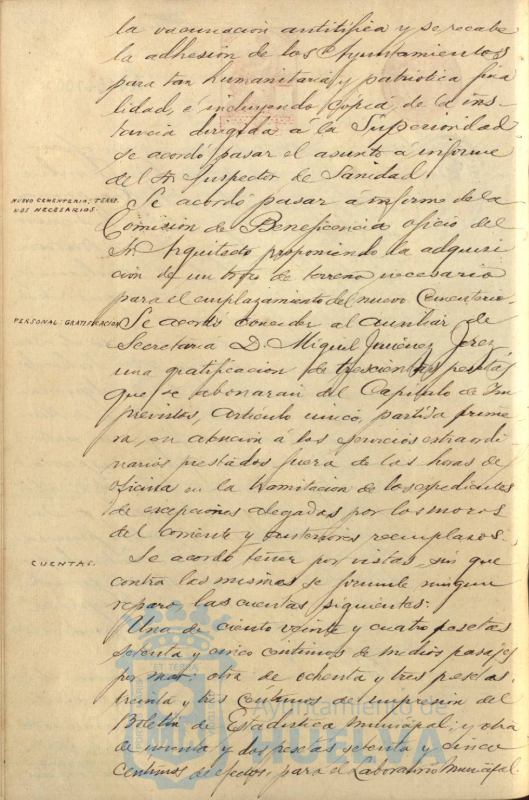 la vacunación antitífica y se recabe
la adhesión de los Ayuntamientos
para tan humanitaria y patriótica fina
lidad, é incluyendo copia de la ins-
tancia dirigida á la Superioridad
se acordó pasar el asunto á informe
del Sr. Inspector de Sanidad.
NUEVO CEMENTERIO; TERRE
NOS NECESARIOS.
Se acordó pasar á informe de la
Comisión de Beneficencia oficio del
Sr. Arquitecto proponiendo la adquisi
ción de un trozo de terreno necesario
para el emplazamiento del nuevo Cementerio.
PERSONAL: GRATIFICACION
Se acordó conceder al auxiliar de
Secretaría D. Miguel Jiménez Jerez
una gratificación de trescientas pesetas
que se abonarán del Capítulo de Im
previstos, artículo único, partida prime
ra, en atención á los servicios extraordi
narios prestados fuera de las horas de
oficina en la tramitación de los expedientes
de excepciones alegadas por los mozos
del corriente y anteriores reemplazos.
CUENTAS.
Se acordó tener por vistas, sin que
contra las mismas se formule ningun
reparo, las cuentas siguientes:
Una de ciento veinte y cuatro pesetas
setenta y cinco céntimos de medios pasajes
por mar; otra de ochenta y tres pesetas
treinta y tres céntimos de impresión del
Boletín de Estadística Municipal; y otra
de noventa y dos pesetas setenta y cinco
céntimos de efectos para el Laboratorio Municipal.
ET TERRA
Ayuntamiento de
HUELVA